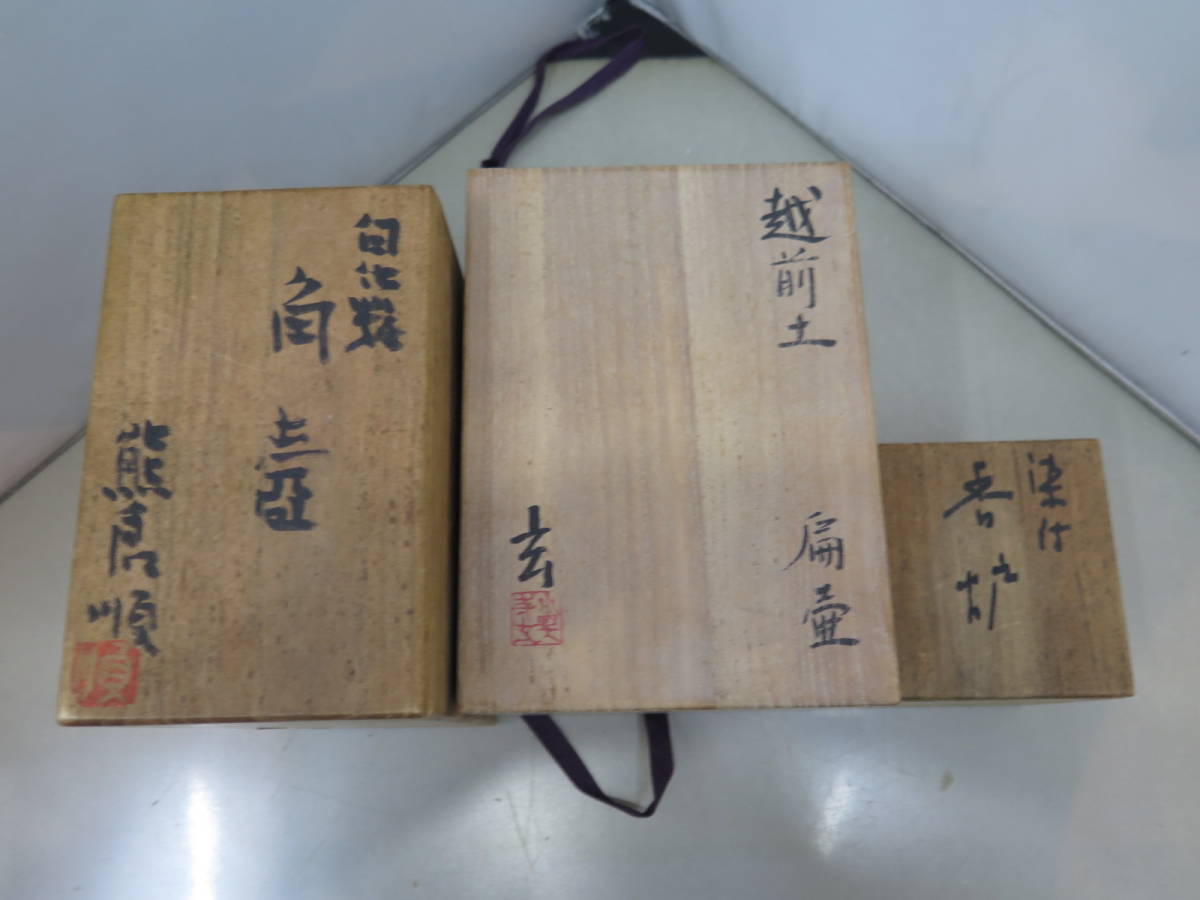 白化粧
角壺
熊唐順
越前土
扁壺
玄
染付
香炉